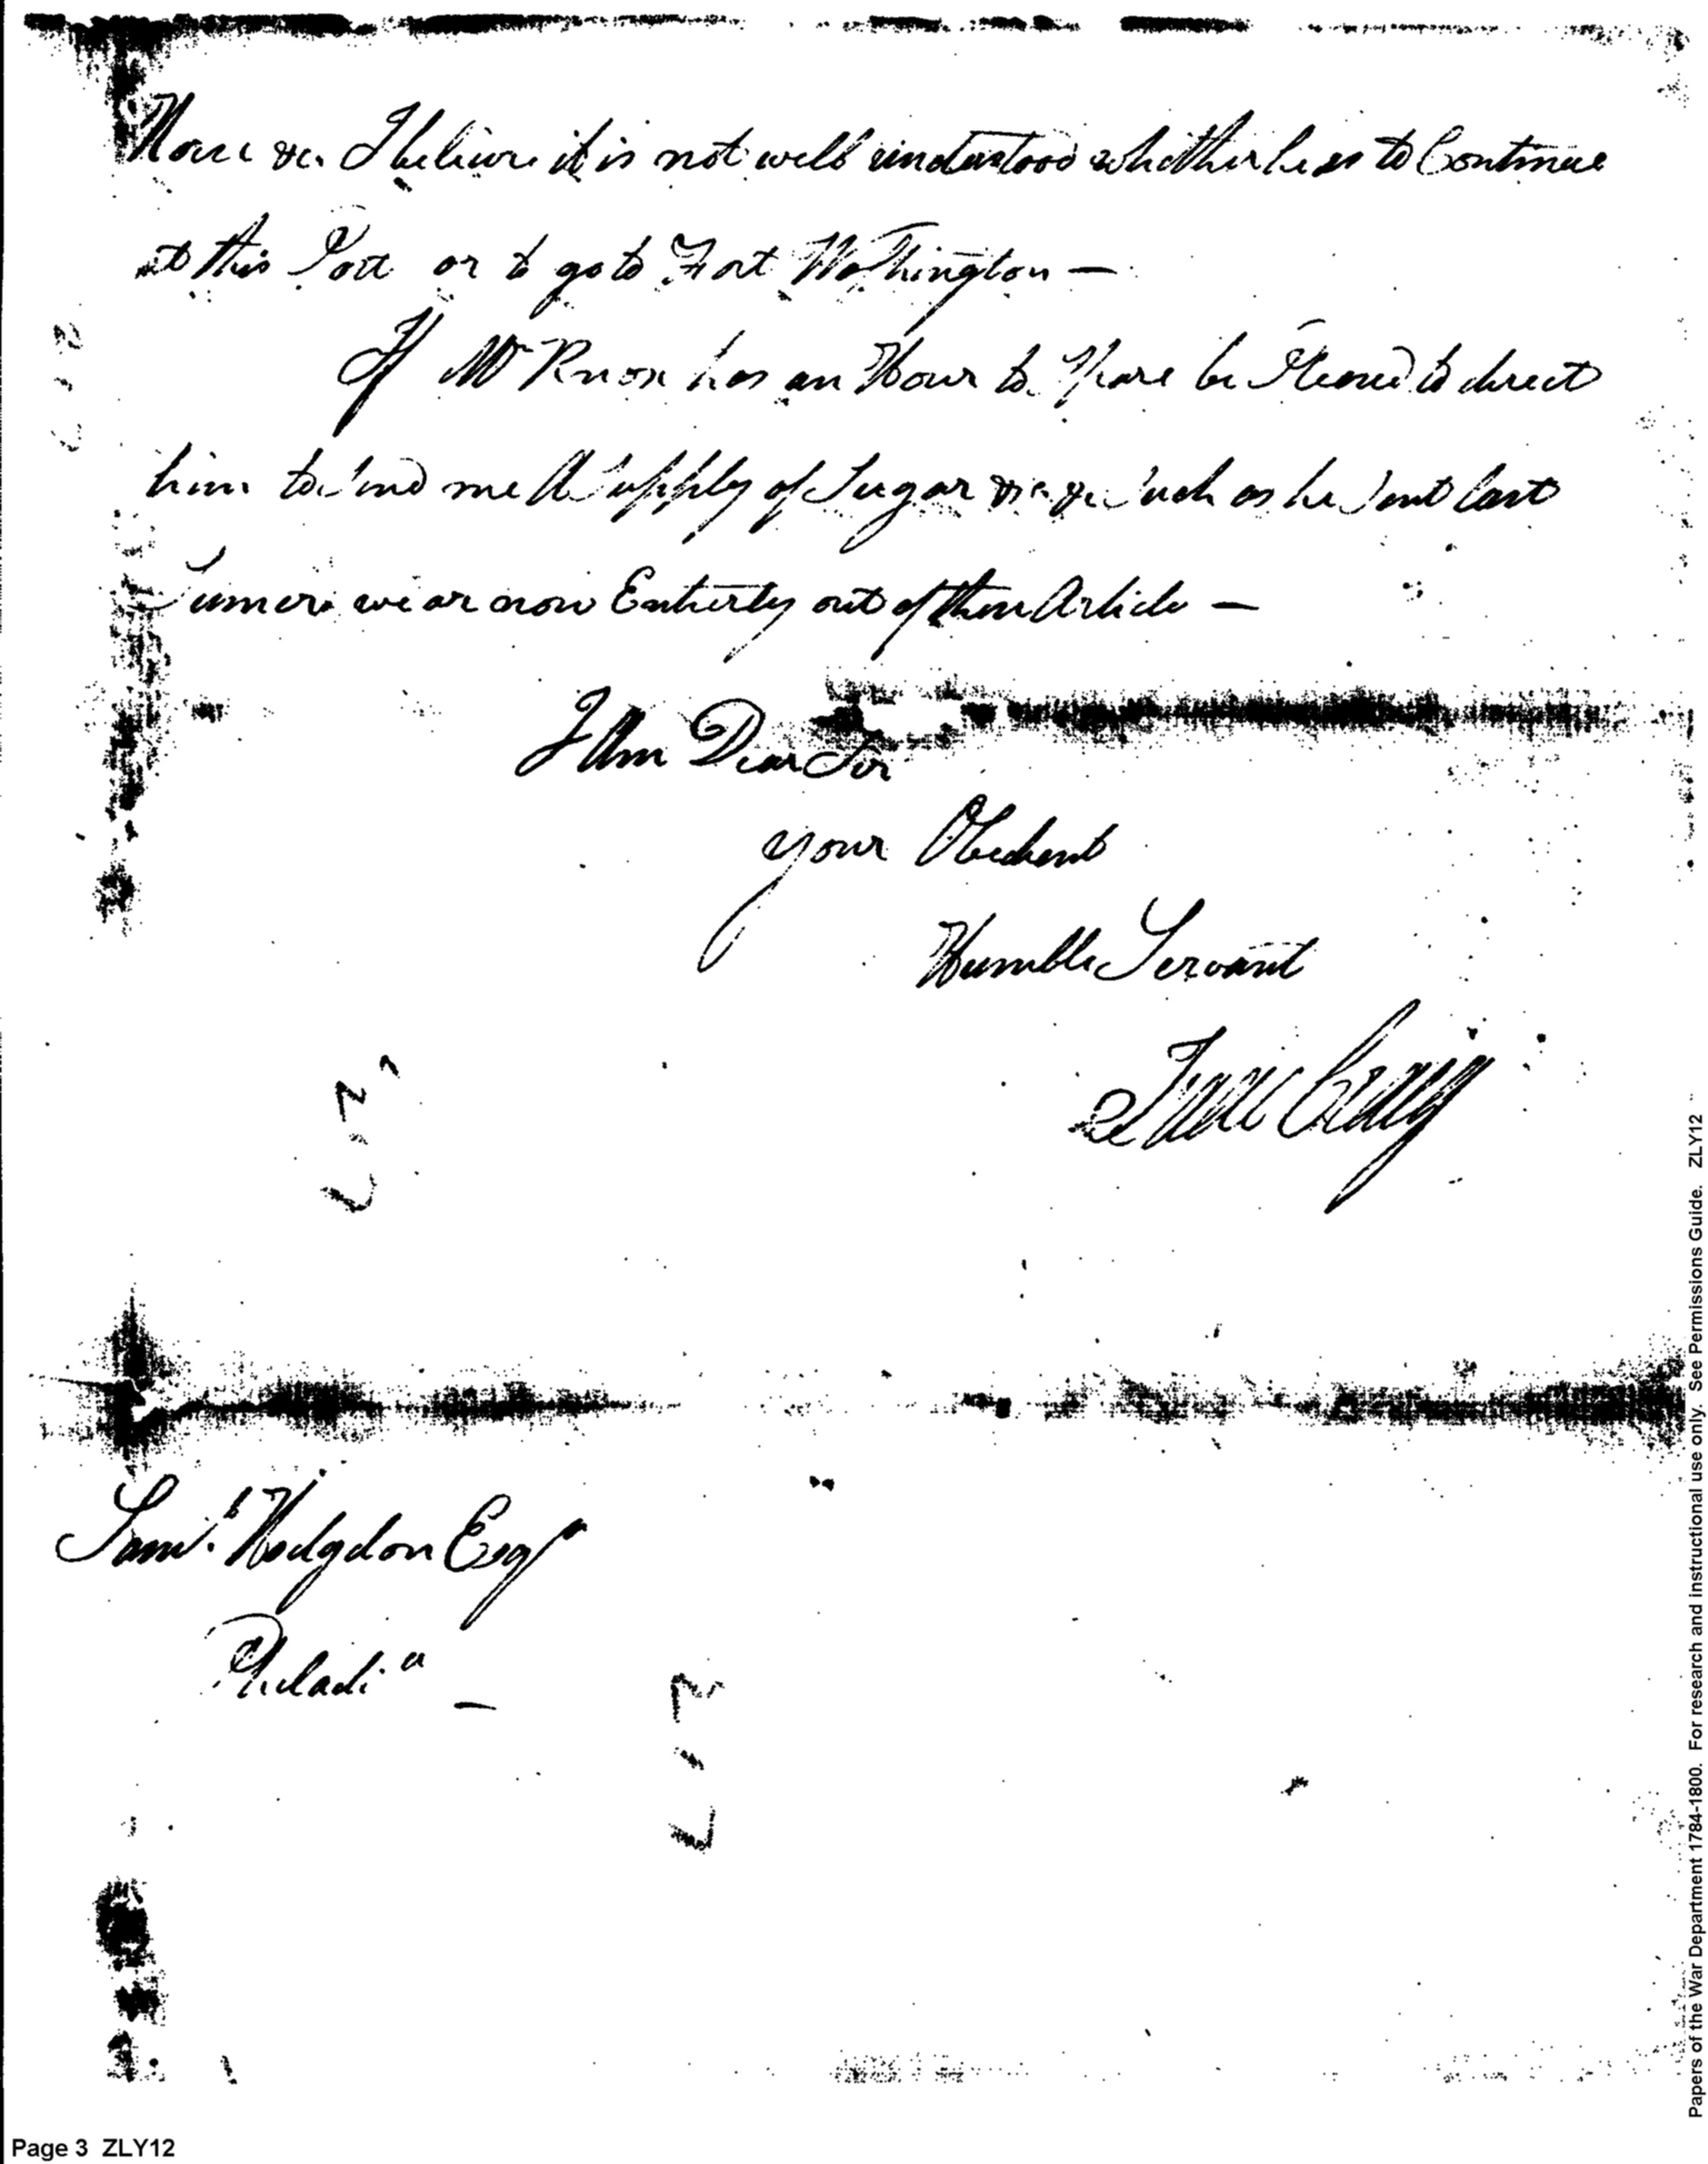 None &c. I believe it is not well understood whither he is to Continue
at this Post or to go to Fort Washington —
If Mr Knox has an Hour to Spare be Pleased to direct
him to Send me A Supply of Sugar &c &c Such as he Sent last
Sumer. we ar now Entierly out of them Article —
I Am Dear Sir
your Obedient
Humble Servant
Isaac Craig
Saml. Hodgdon Esqr
Philadia —
Page 3 ZLY12
Papers of the War Department 1784-1800. For research and instructional use only. See Permissions Guide. ZLY12